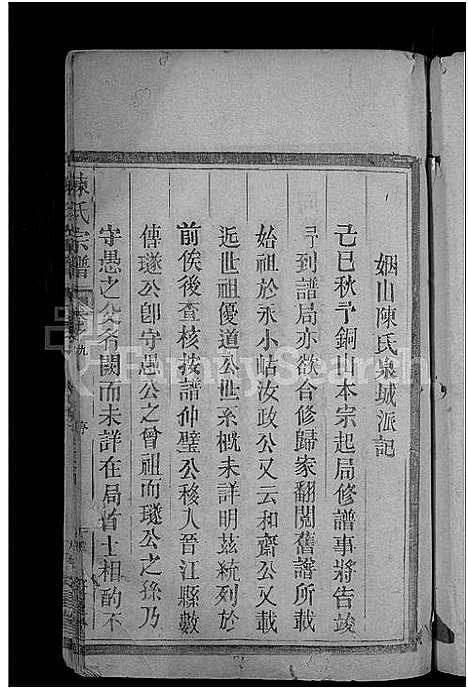 姻山陳氏泉城派記
己巳秋予銅山本宗起局修譜事將告竣
予到譜局亦欲合修歸家翻閱舊譜所載
始祖於永小岵汝政公又云和齋公又載
近世祖優道公世系概未詳明茲統列於
前俟後查核按譜仲璧公移入晉江縣數
傳璲公卽守愚公之曾祖而璲公之孫乃
守愚之父名闕而未詳在局首士相酌不
陳氏宗譜
序
FamilySearch